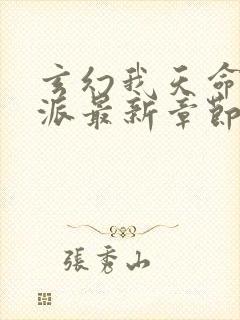 玄幻我天命
派最新章節
張秀山